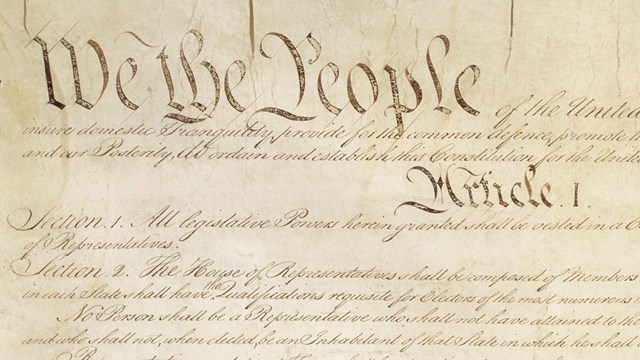 We the People of the United
insure domestic Tranquility, provide for the common defence, promote
and our Posterity, do ordain and establish this Constitution for the United
Article. I.
Section. 1. All legislative Powers herein granted shall be vested in a
of Representatives.
Section. 2. The House of Representatives shall be composed of Members
in each State shall have the Qualifications requisite for Electors of the most numerous
No Person shall be a Representative who shall not have attained to
and who shall not, when elected, be an Inhabitant of that State in which he shall